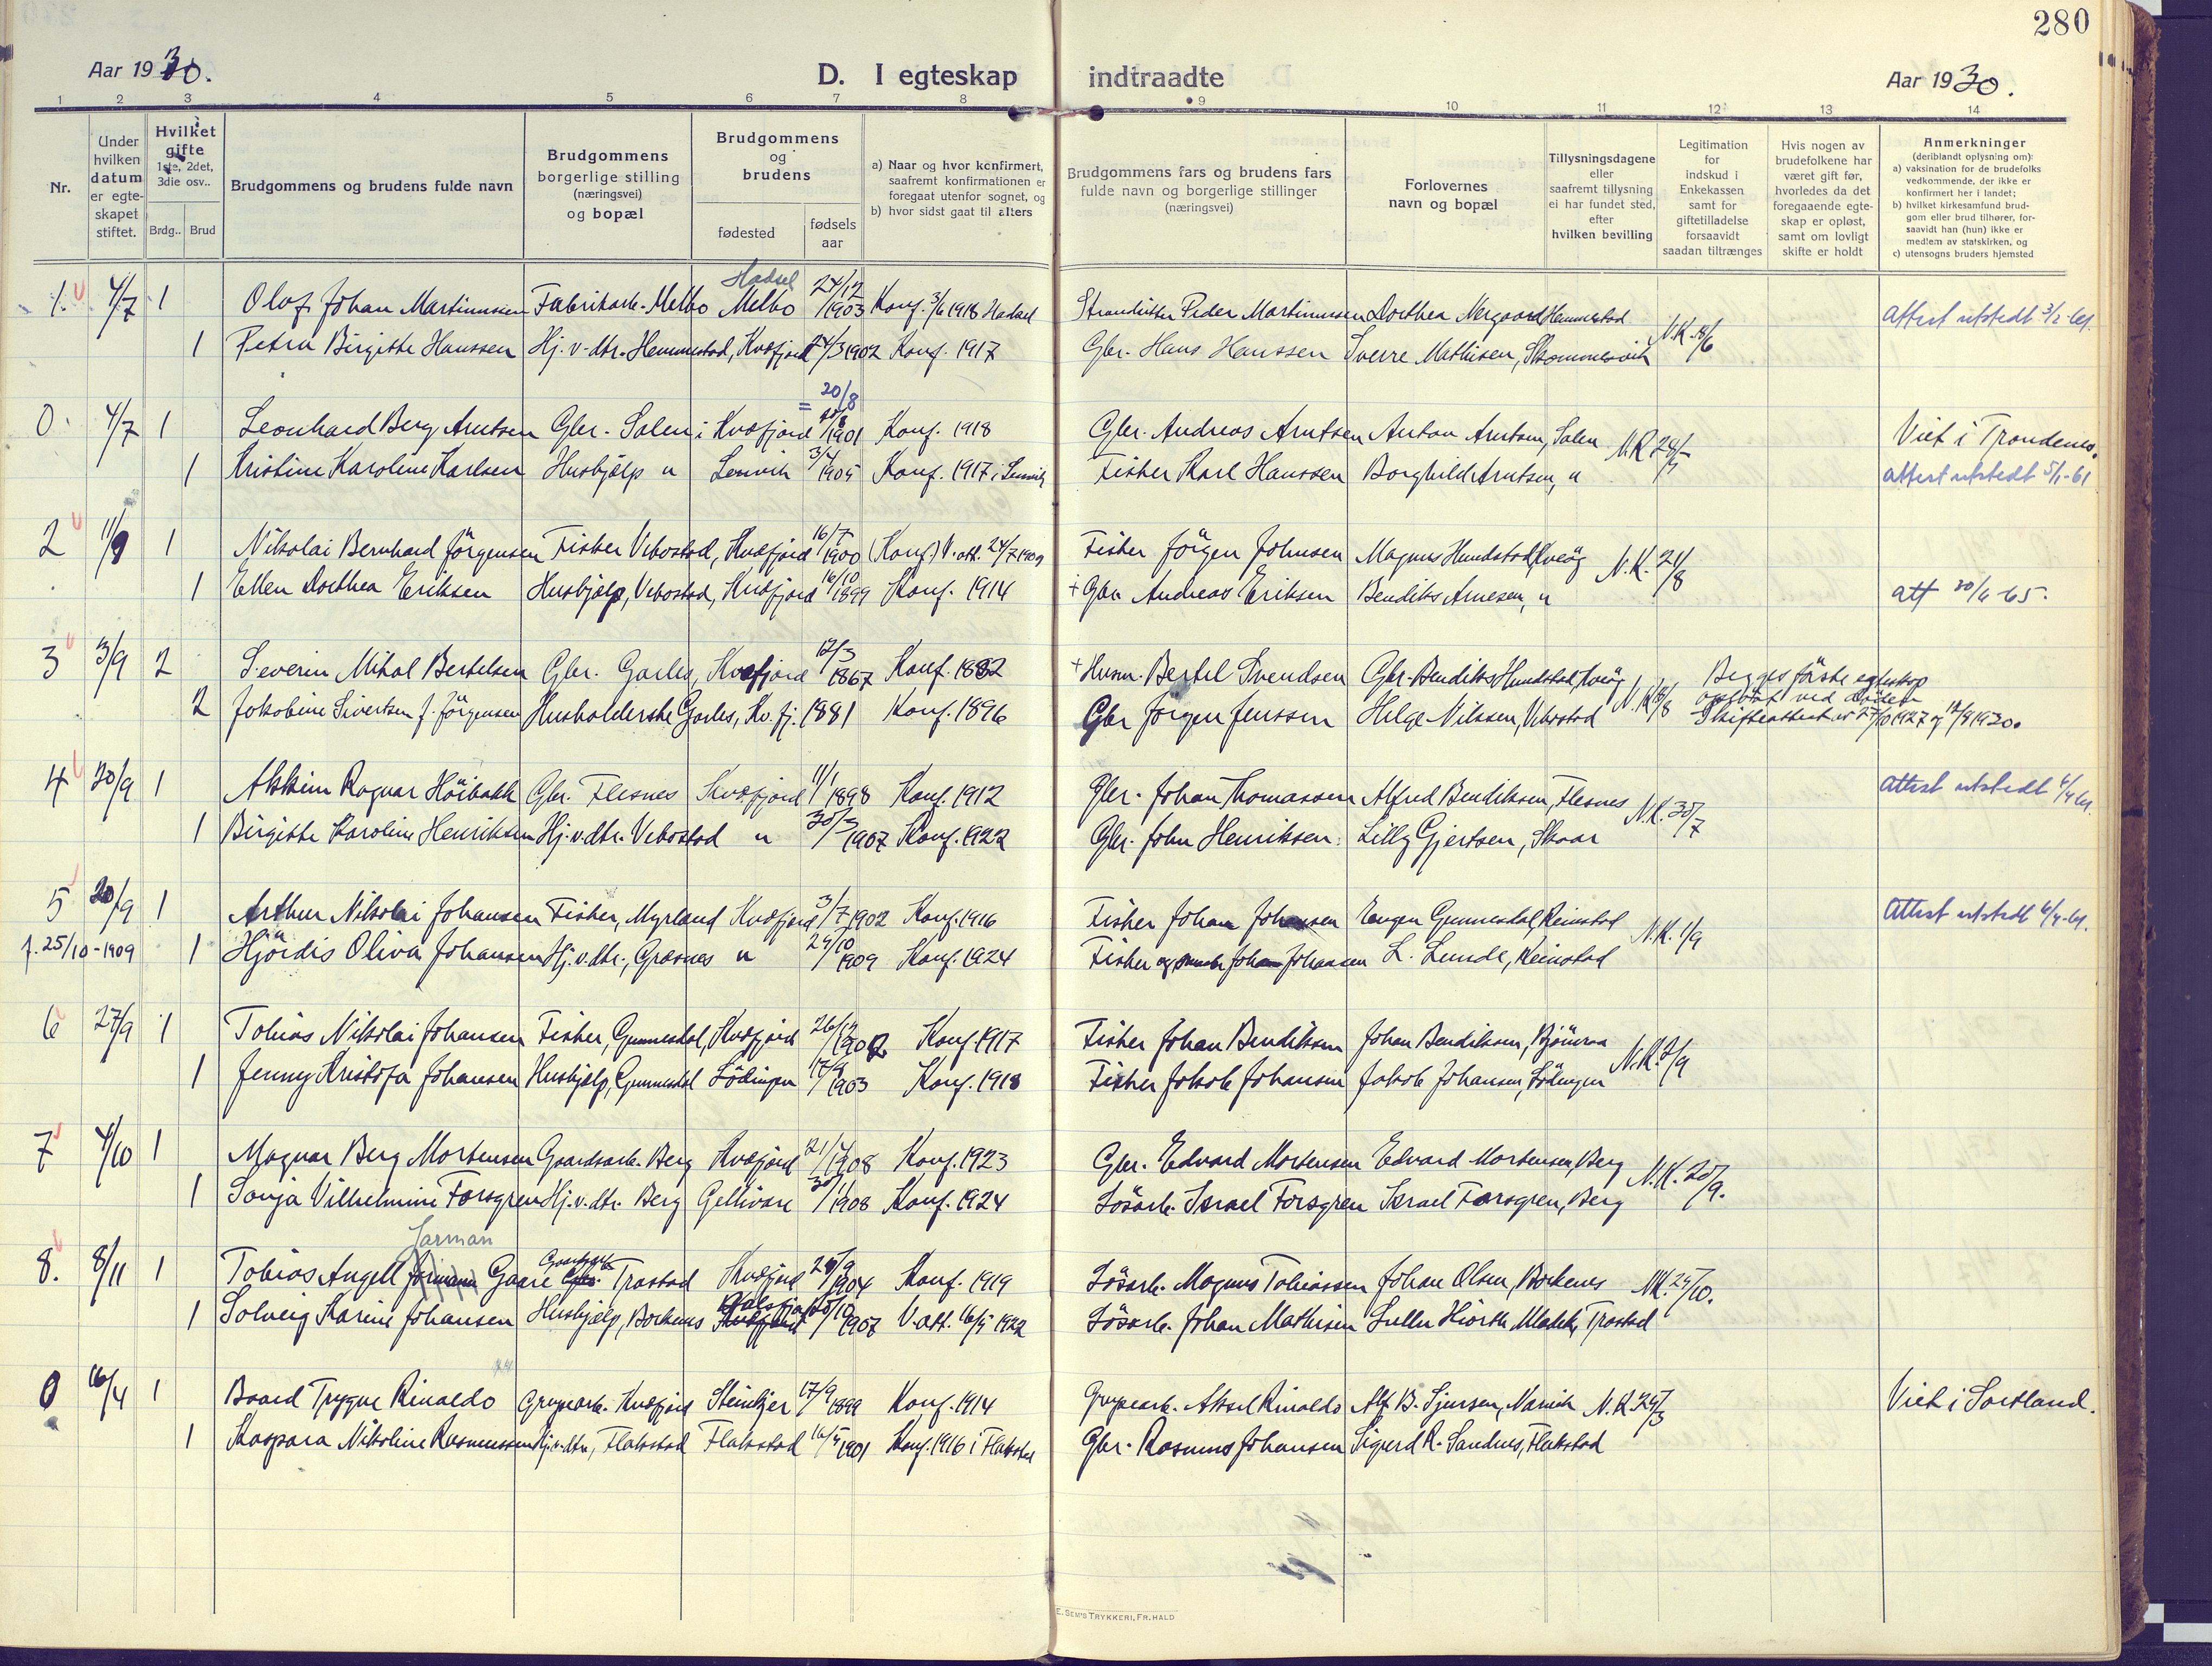 280
Aar 1930.
D. I egteskap indtraadte
Aar 1930.
1 2 3 4 5 6 7 8 9 10 11 12 13 14
Nr.
Under hvilken datum er egte-skapet stiftet.
Hvilket gifte 1ste, 2det, 3die osv..
Brdg.. Brud
Brudgommens og brudens fulde navn
Brudgommens borgerlige stilling (næringsvei) og bopæl
Brudgommens og brudens
fødested
fødsels aar
a) Naar og hvor konfirmert, saafremt konfirmationen er foregaat utenfor sognet, og
b) hvor sidst gaat til alters
Brudgommens fars og brudens fars fulde navn og borgerlige stillinger (næringsvei)
Forlovernes navn og bopæl
Tillysningsdagene eller saafremt tillysning ei har fundet sted, efter hvilken bevilling
Legitimation for indskud i Enkekassen samt for giftetilladelse forsaavidt saadan tiltrænges
Hvis nogen av brudefolkene har været gift før, hvorledes da det foregaaende egte-skap er opløst, samt om lovligt skifte er holdt
Anmerkninger (deriblandt oplysning om):
a) vaksination for de brudefolks vedkommende, der ikke er konfirmert her i landet;
b) hvilket kirkesamfund brud-gom eller brud tilhører, for-saavidt han (hun) ikke er medlem av statskirken, og
c) utensogns bruders hjemsted
Hadsel
1. 4/7 1 Olaf Johan Martinussen Fabrikarb. Melbo Melbo 24/12 1903 Konf. 3/6 1918 Hadsel Peder Martinussen Dorthea Nergaard Hemmestad attest utstedt 3/2-61.
1 Petra Birgitte Hanssen Hj. v. dtr. Hemmestad, Kvæfjord 24/3 1902 Konf. 1917 Gbr. Hans Hanssen Sverre Mathisen,
= 20/8
0. 4/7 1 Leonhard Berg Arntsen Gbr. Salen i Kvæfjord 1901 Konf. 1918 Gbr. Andreas Arntsen Anton Arntsen, Salen Viet i Trondenes.
1 Kristine Karoline Karlsen Hushjelp " Lenvik 3/4 1905 Konf. 1917 i Lenvik Fisker Karl Hanssen Borghild Arntsen, " attest utstedt 5/1-61
2 11/9 1 Nikolai Bernhard Jørgensen Fisker Vebostad, Kvæfjord 16/7 1900 (Konf.) V. att. 24/7 1909 Fisker Jörgen Johnsen Magnus Hundstad, Kveög N.K. 21/8
1 Ellen Dorthea Eriksen Husbjælp, Vebostad, Kvæfjord 16/10 1899 Konf. 1914 + Gbr. Andreas Eriksen Bendiks Arnesen, " att 20/4 65.
3 3/9 2 Severin Mikal Bertelsen Gbr. Gaples, Kvæfjord 12/3 1867 Konf. 1882 + Husm. Bertel Svendsen Gbr. Bendiks Hundstad, Kveög Begges første egteskap
2 Jakobine Sivertsen f. Jørgensen Husholderske Kv.fj. 1881 Konf. 1896 Gbr Jørgen Jenssen Helge Nilssen, Vebostad opløst ved døden
Skifteattest av 27/10 1927 og 12/9 1930.
4 20/9 1 Ragnar Höibakk Gbr. Flesnes Kvæfjord 11/1 1898 Konf. 1912 Gbr. Johan Thomassen Alfred Bendiksen, Flesnes N.K. 30/7 Attest utstedt 6/4-61.
1 Birgitte Karoline Henriksen Hj. v. dtr. Vebostad " 30/3 1907 Konf. 1922 Gbr. John Henriksen Lilly Gjertsen, Skaar
5 20/9 1 Arthur Nikolai Johansen Fisker, Myrland Kvæfjord 3/7 1902 Konf. 1916 Fisker Johan Johansen Eugen Gunnesdal, Reinstad N.K. 1/9 Attest utstedt 6/4-61.
f. 25/10-1909 1 Hjördis Oliva Johansen Hj. v. dtr., Græsnes " 29/10 1909 Konf. 1924 Fisker og Johan Johansen L. Lunde, Reinstad
6 27/9 1 Tobias Nikolai Johansen Fisker, Gunnesdal, Kvæfjord 26/12 1902 Konf. 1917 Fisker Johan Bendiksen Johan Bendiksen, Björnraa
1 Jenny Kristofa Johansen Husbjælp, Gunnesdal Lödingen 17/9 1903 Konf. 1918 Fisker Jakob Johansen Jakob Johansen, Lödingen
7 4/10 1 Magnar Berg Mortensen Gaardsarb. Berg Kvæfjord 21/4 1908 Konf. 1923 Gbr. Edvard Mortensen Edvard Mortensen, Berg N.K. 20/9.
1 Sonja Vilhelmine Forsgren Hj. v. dtr. Berg Gellivare 30/1 1908 Konf. 1924 Lösarb. Israel Forsgren Israel Forsgren, Berg
Jarman
8. 8/11 1 Tobias Angell Gaare Trastad Kvæfjord 1904 Konf. 1919 Lösarb. Magnus Tobiassen Johan Olsen, Borkenes NK. 29/10.
1 Solveig Karine Johansen Husbjelp, Borkenes 1907 V. att. 16/5 1922 Lösarb. Johan Mathisen Trastad
0 16/4 1 Baard Trygve Rinaldo Grupearb. Kvæfjord Steinkjer 17/9 1899 Konf. 1914 Grupearb. Aksel Rinaldo Alf B. Sjursen, Narvik Viet i Sortland.
1 Kaspara Nikoline Rasmussen Hj. v. dtr., Flakstad Flakstad 16/5 1901 Konf. 1916 i Flakstad Gbr. Rasmus Johansen Sigurd R. Sandnes, Flakstad
E. SEM'S TRYKKERI, FR.HALD